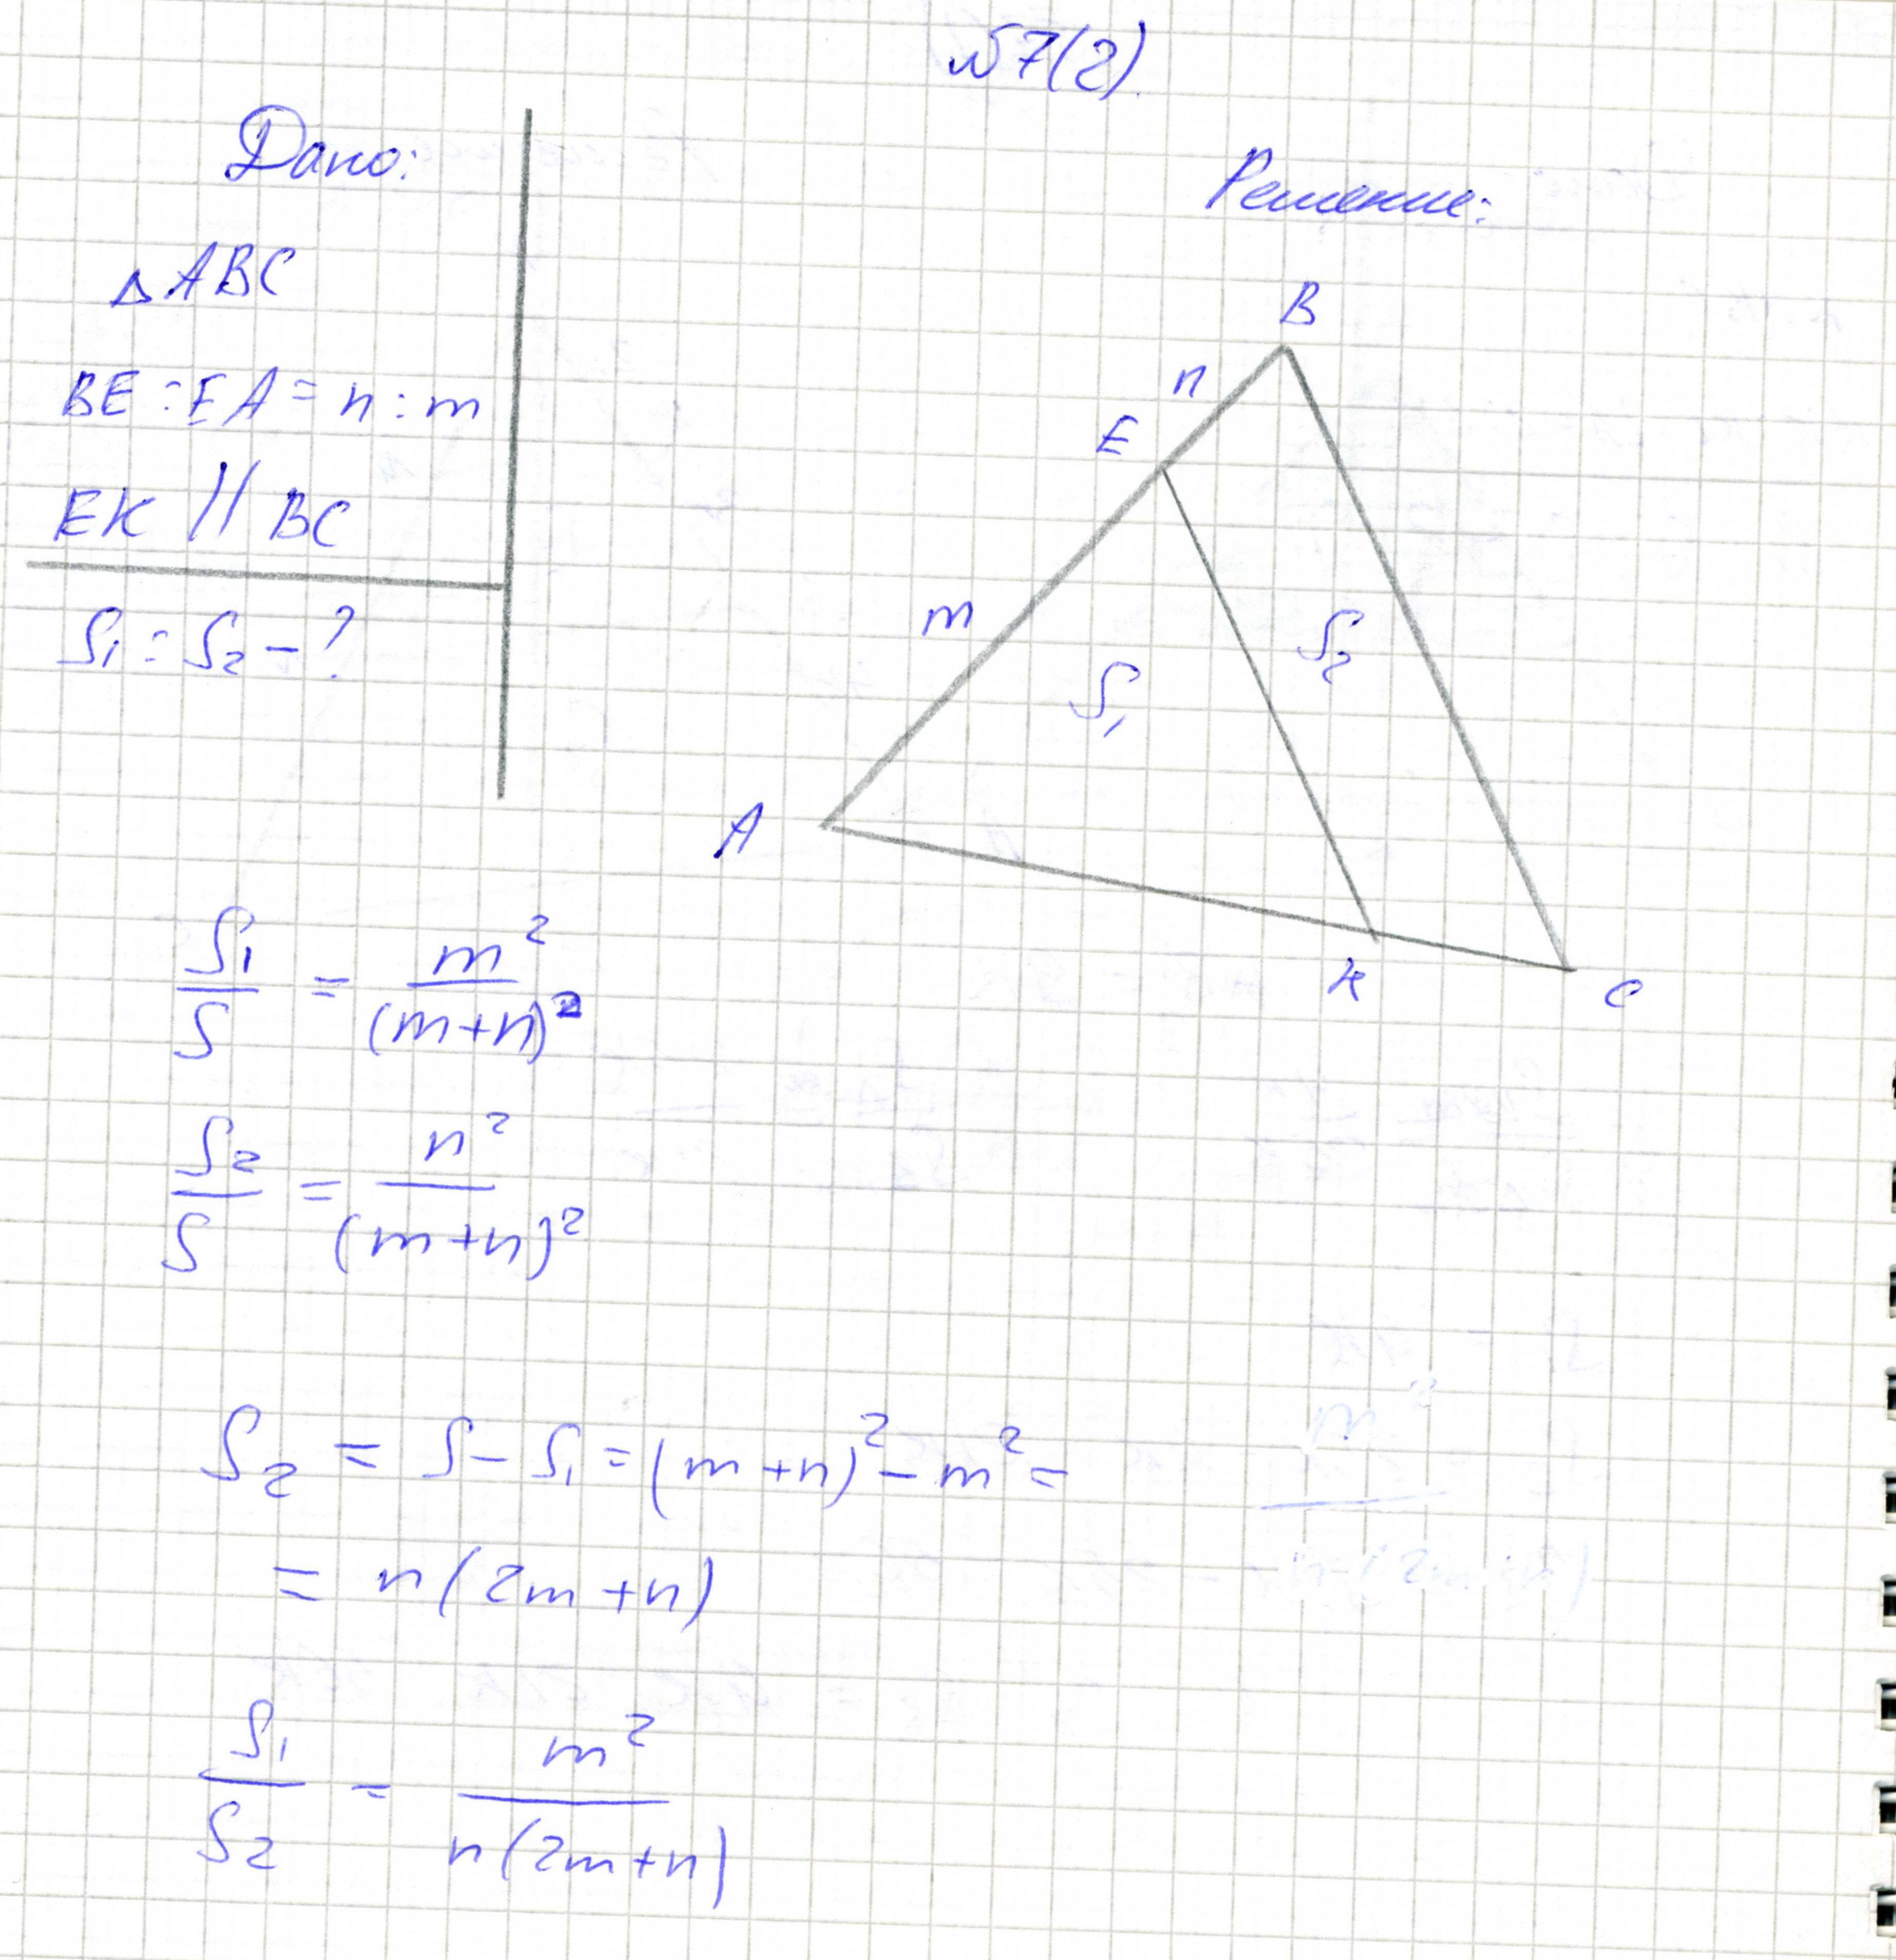 №7(2).
Дано:
△ABC
BE:EA=n:m
EK || BC
S₁:S₂-?
Решение:
B
n
E
m
S₁
S₂
A
K
C
S₁/S = m²/(m+n)²
S₂/S = n²/(m+n)²
S₂ = S-S₁=(m+n)²-m²=
= n(2m+n)
S₁/S₂ = m²/n(2m+n)